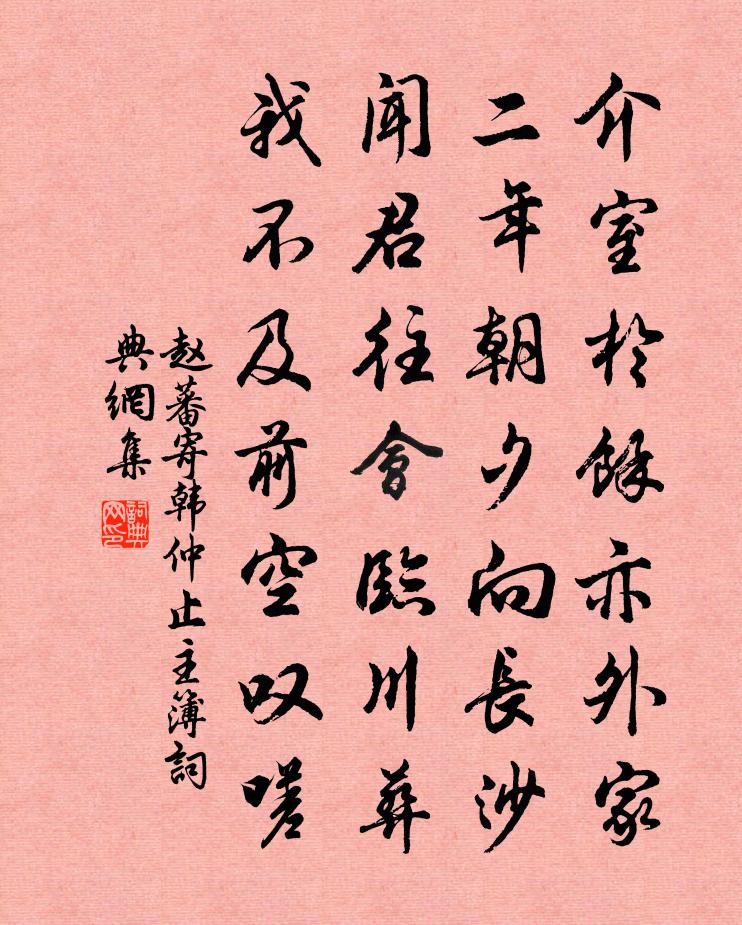 介室於餘亦外家
二年朝夕向長沙
聞君往會臨川葬
我不及前空叹嗟
赵蕃寄韩仲止主簿詞
典網集
詞典網印